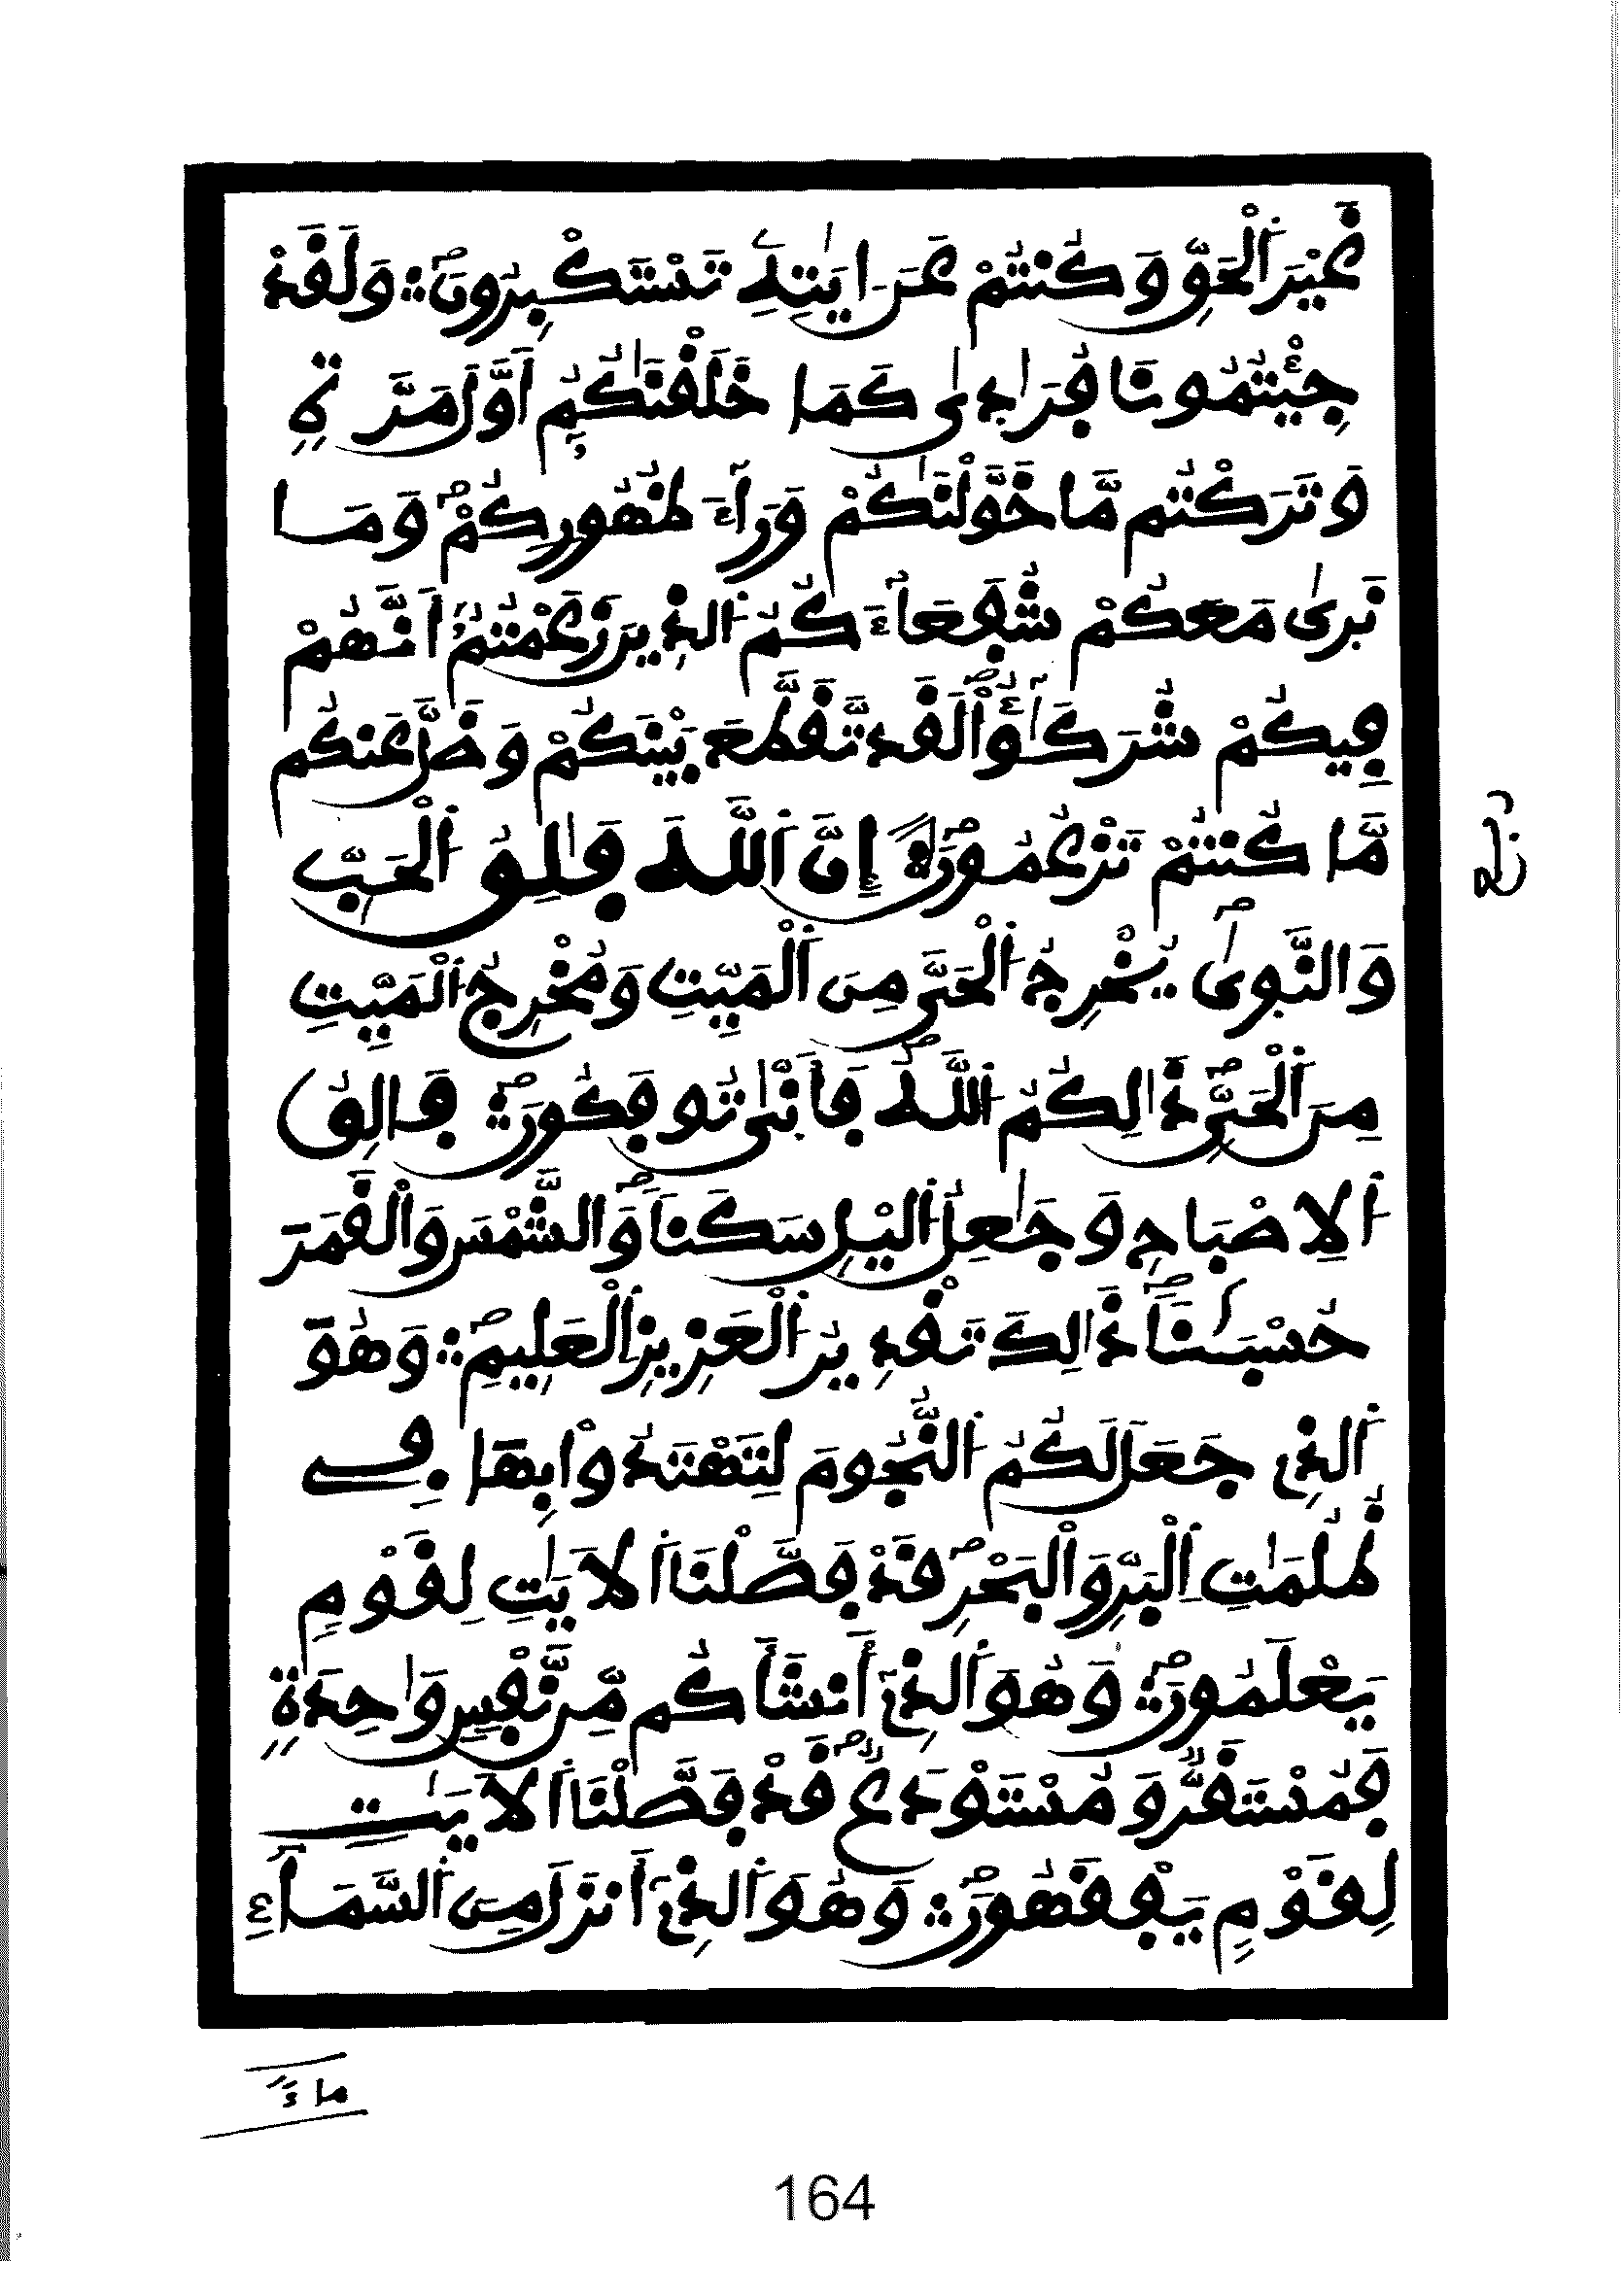 غَيْرَ اَ۬لْحَقِّ وَكُنتُمْ عَنَ اٰيَٰتِهِۦ تَسْتَكْبِرُونَۖ وَلَقَدْ
جِئْتُمُونَا فُرَٰدٰىٰ كَمَا خَلَقْنَٰكُمُۥٓ أَوَّلَ مَرَّةٖ
وَتَرَكْتُم مَّا خَوَّلْنَٰكُمْ وَرَآءَ ظُهُورِكُمْۖ وَمَا
نَر۪ىٰ مَعَكُمْ شُفَعَآءَكُمُ اُ۬لذِينَ زَعَمْتُمُۥٓ أَنَّهُمْ
فِيكُمْ شُرَكَٰٓؤُاْۖ لَقَد تَّقَطَّعَ بَيْنَكُمْ وَضَلَّ عَنكُم
مَّا كُنتُمْ تَزْعُمُونَۖ إِنَّ اَ۬للَّهَ فَٰلِقُ اُ۬لْحَبِّ
وَالنَّو۪ىٰۖ يُخْرِجُ اُ۬لْحَيَّ مِنَ اَ۬لْمَيِّتِ وَمُخْرِجُ اُ۬لْمَيِّتِ
مِنَ اَ۬لْحَيِّۖ ذَالِكُمُ اُ۬للَّهُۖ فَأَنّ۪ىٰ تُوفَكُونَۖ فَالِقُ
اُ۬لِاصْبَاحِ وَجَٰعِلُ اُ۬ليْلِ سَكَناٗۖ وَالشَّمْسَ وَالْقَمَرَ
حُسْبَٰناٗۖ ذَالِكَ تَقْدِيرُ اُ۬لْعَزِيزِ اِ۬لْعَلِيمِۖ وَهُوَ
اَ۬لذِي جَعَلَ لَكُمُ اُ۬لنُّجُومَ لِتَهْتَدُواْ بِهَا فِے
ظُلُمَٰتِ اِ۬لْبَرِّ وَالْبَحْرِۖ قَدْ فَصَّلْنَا اَ۬لَايَٰتِ لِقَوْمٖ
يَعْلَمُونَۖ وَهُوَ اَ۬لذِيٓ أَنشَأَكُم مِّن نَّفْسٖ وَٰحِدَةٖ
فَمُسْتَقَرّٞ وَمُسْتَوْدَعٞۖ قَدْ فَصَّلْنَا اَ۬لَايَٰتِ
لِقَوْمٖ يَفْقَهُونَۖ وَهُوَ اَ۬لذِيٓ أَنزَلَ مِنَ اَ۬لسَّمَآءِ
ربع
مآءٗ
164